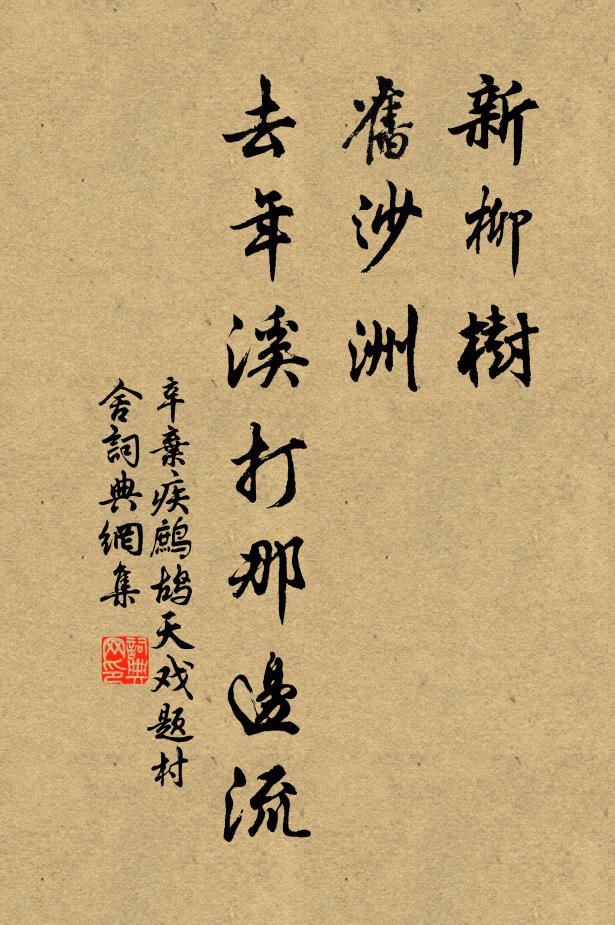 新柳樹
舊沙洲
去年溪打那邊流
辛棄疾鷓鴣天戏題村
舍詞典網集
詞典网印